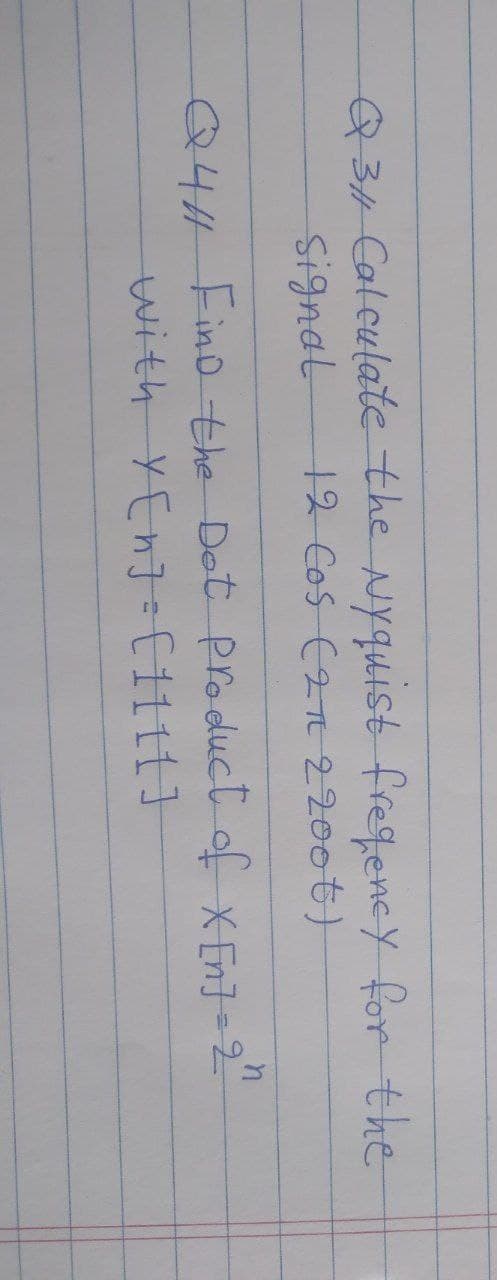 Q3// Calculate the Nyquist freqency for the
signal 12 Cos (2π 2200t)
Q4// Find the Dot product of x[n]=2ⁿ
with y[n]=[1111]